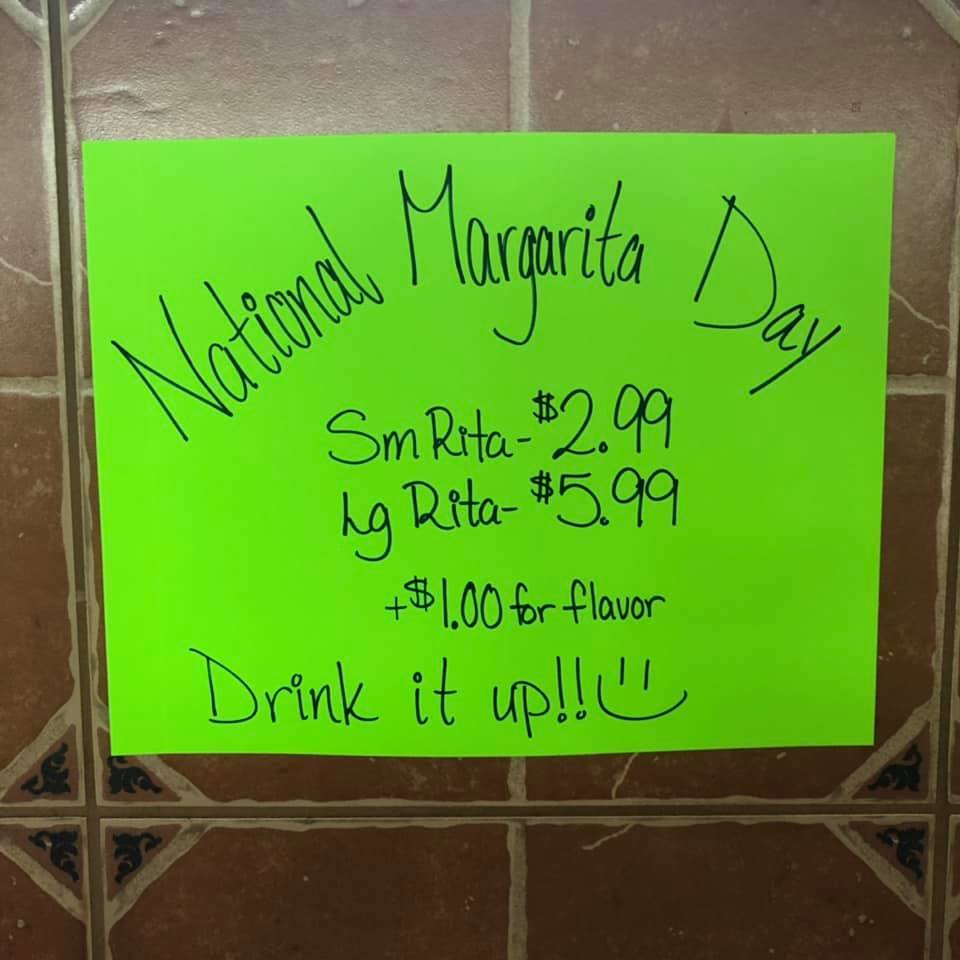 National Margarita Day
Sm Rita- $2.99
Lg Rita- $5.99
+$1.00 for flavor
Drink it up!!